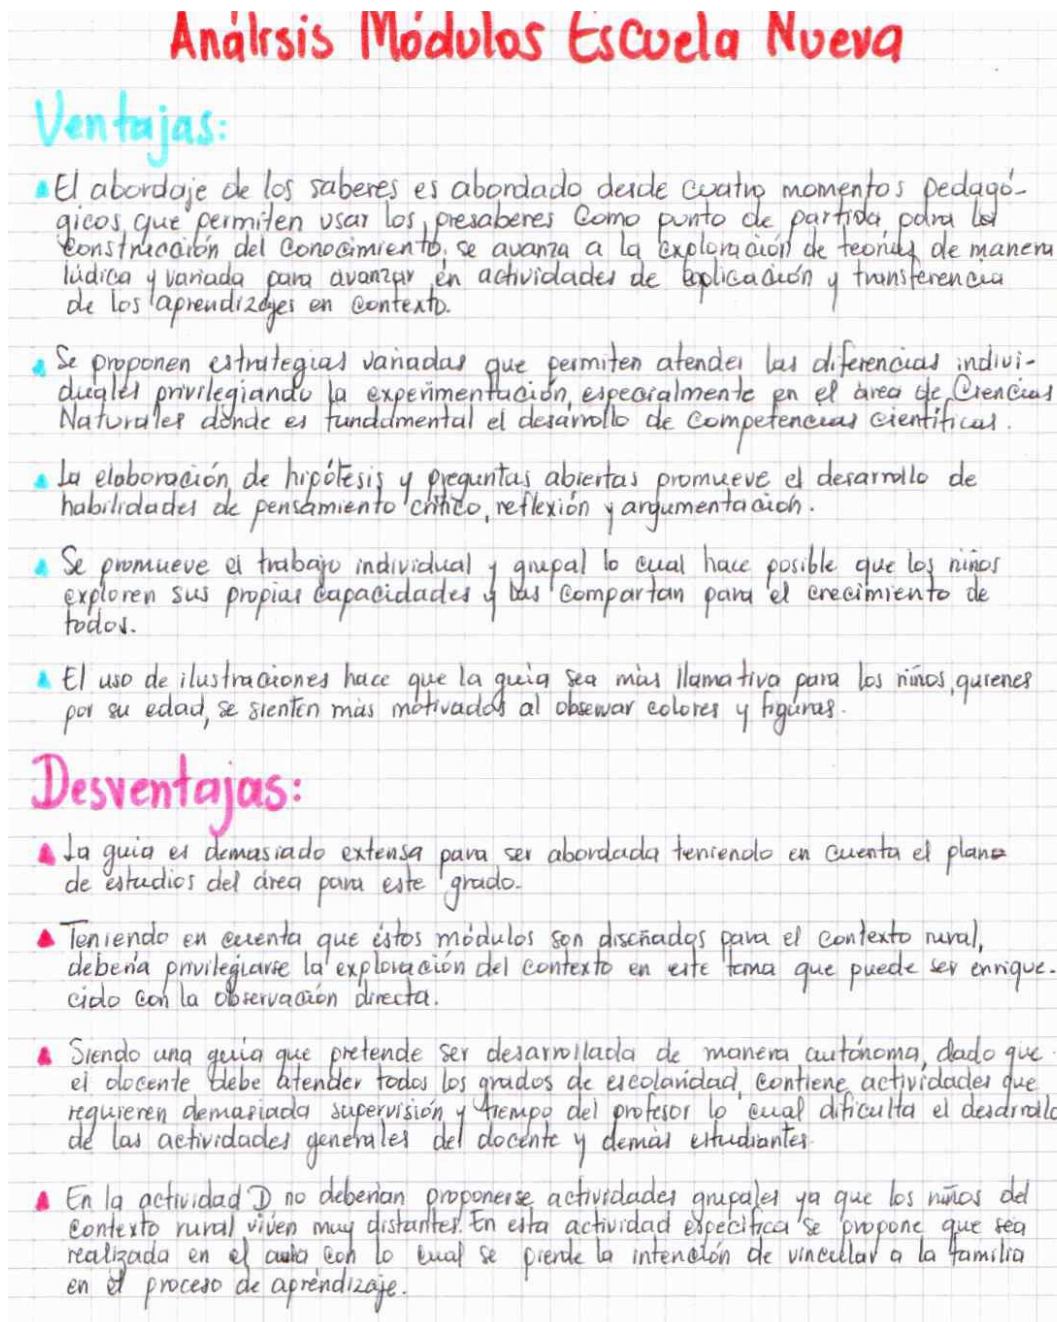 Análisis Módulos Escuela Nueva
Ventajas:
El abordaje de los saberes es abordado desde cuatro momentos pedagó-
gicos que permiten usar los presaberes como punto de partida para la
construcción del conocimiento, se avanza a la exploración de teorías de manera
lúdica y variada para avanzar en actividades de aplicación y transferencia
de los aprendizajes en contexto.
Se proponen estrategias variadas que permiten atender las diferencias indivi-
duales privilegiando la experimentación, especialmente en el área de Ciencias
Naturales donde es fundamental el desarrollo de competencias científicas.
La elaboración de hipótesis y preguntas abiertas promueve el desarrollo de
habilidades de pensamiento crítico, reflexión y argumentación.
Se promueve el trabajo individual y grupal lo cual hace posible que los niños
exploren sus propias capacidades y las compartan para el crecimiento de
todos.
El uso de ilustraciones hace que la guía sea más llamativa para los niños, quienes
por su edad, se sienten más motivados al observar colores y figuras.
Desventajas:
La guía es demasiado extensa para ser abordada teniendo en cuenta el plan
de estudios del área para este grado.
Teniendo en cuenta que éstos módulos son diseñados para el contexto rural,
debería privilegiarse la exploración del contexto en este tema que puede ser enrique-
cido con la observación directa.
Siendo una guía que pretende ser desarrollada de manera autónoma, dado que
el docente debe atender todos los grados de escolaridad, contiene actividades que
requieren demasiada supervisión y tiempo del profesor lo cual dificulta el desarrollo
de las actividades generales del docente y demás estudiantes.
En la actividad D no deberían proponerse actividades grupales ya que los niños del
contexto rural viven muy distantes. En esta actividad específica se propone que sea
realizada en el aula con lo cual se pierde la intención de vincular a la familia
en el proceso de aprendizaje.